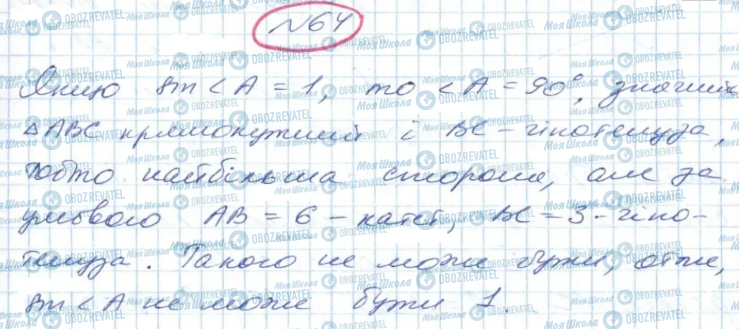 №64
Якщо sin < A = 1, то < A = 90°, значить
△ABC прямокутний і BC – гіпотенуза,
тобто найбільша сторона, але за
умовою AB = 6 – катет, BC = 3 - гіпо-
тенуза. Такого не може бути, отже,
sin < A не може бути 1.